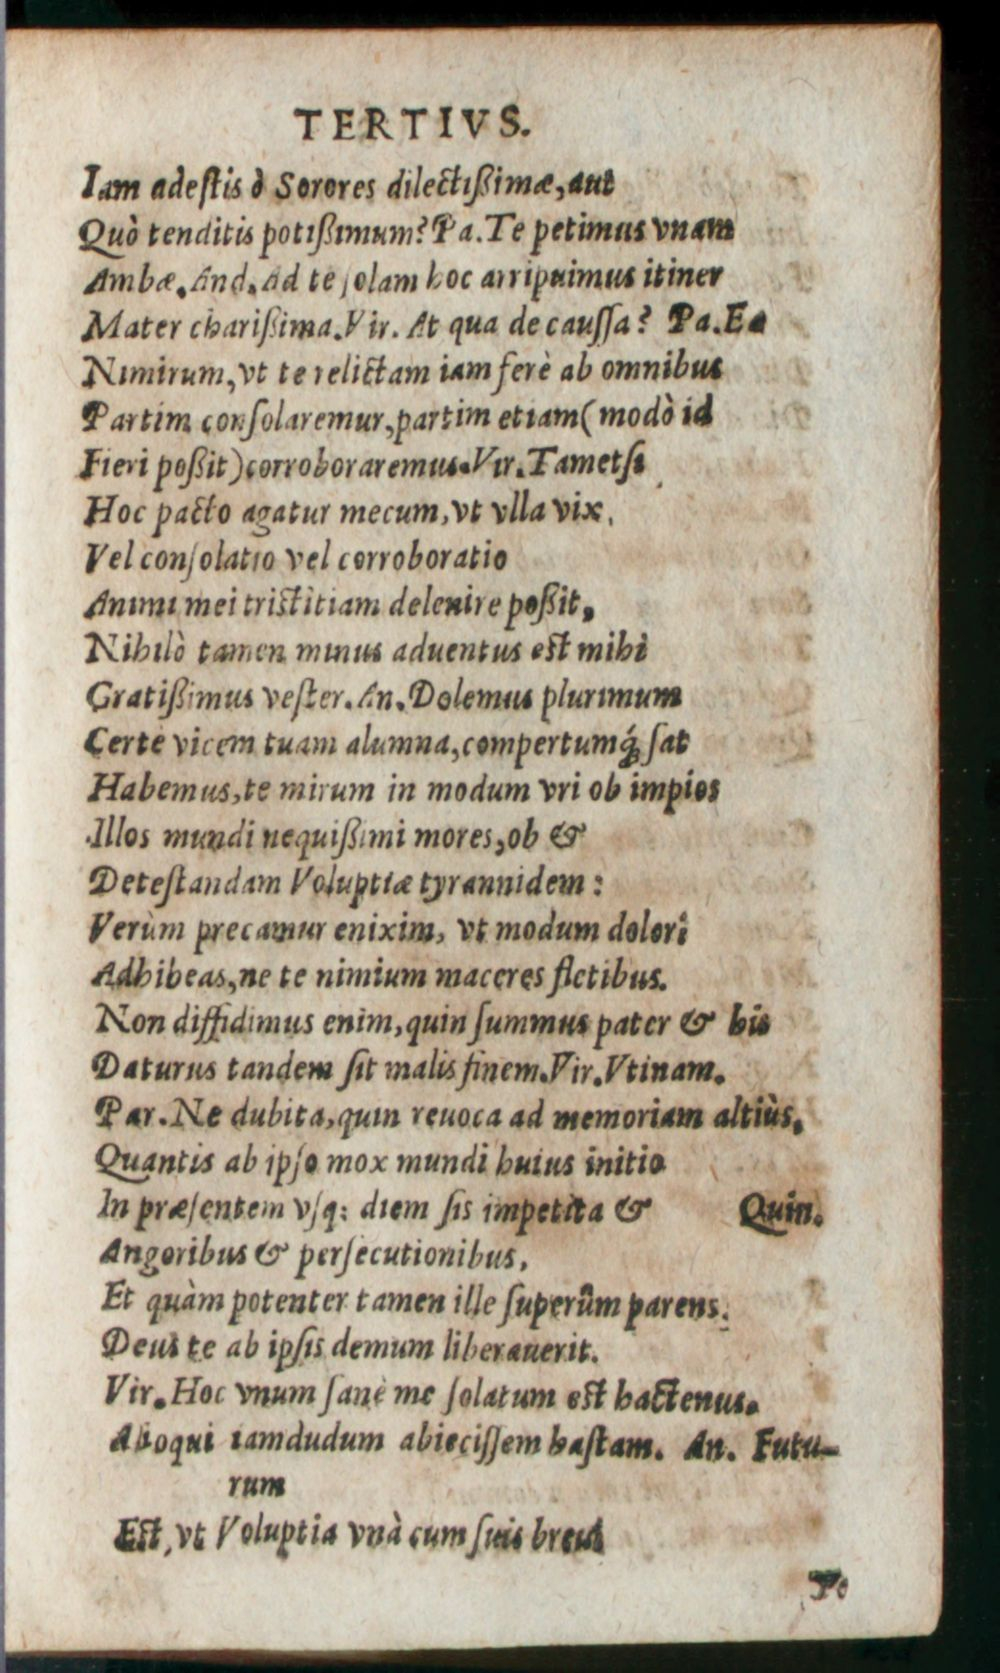 TERTIVS.
Iam adeſtis ò Sorores dilectißimæ, aut
Quò tenditis potißimum? Pa. Te petimus vnam
Ambæ. And. Ad te ſolam hoc arripuimus itiner
Mater charißima. Vir. At qua de cauſſa? Pa. Ea
Nimirum, vt te relictam iam ferè ab omnibus
Partim conſolaremur, partim etiam (modò id
Fieri poßit) corroboraremus. Vir. Tametſi
Hoc pacto agatur mecum, vt vlla vix,
Vel conſolatio vel corroboratio
Animi mei triſtitiam delenire poßit,
Nihilò tamen minus aduentus eſt mihi
Gratißimus veſter. An. Dolemus plurimum
Certè vicem tuam alumna, compertumq́ꝫ ſat
Habemus, te mirum in modum vri ob impios
Illos mundi nequißimi mores, ob &
Deteſtandam Voluptiæ tyrannidem:
Verùm precamur enixim, vt modum dolori
Adhibeas, ne te nimium maceres fletibus.
Non diffidimus enim, quin ſummus pater & his
Daturus tandem ſit malis finem. Vir. Vtinam.
Par. Ne dubita, quin reuoca ad memoriam altiùs,
Quantis ab ipſo mox mundi huius initio
In præſentem vſq; diem ſis impetita & Quin.
Angoribus & perſecutionibus,
Et quàm potenter tamen ille ſuperûm parens,
Deus te ab ipſis demum liberauerit.
Vir. Hoc vnum ſanè me ſolatum eſt hactenus.
Alioqui iamdudum abieciſſem haſtam. An. Futu-
rum
Eſt, vt Voluptia vnà cum ſuis breui
Pe